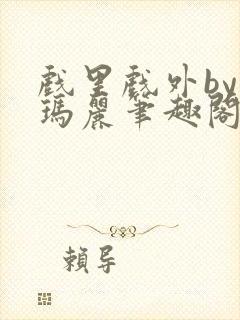 戲里戲外by
瑪麗筆趣閣
賴导